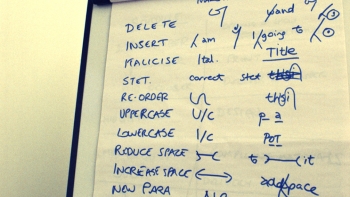 DELETE and
INSERT / am / going to
ITALICISE Ital. Title
STET. correct stet
RE-ORDER
UPPERCASE U/C p a
LOWERCASE l/c POT
REDUCE SPACE to it
INCREASE SPACE add space
NEW PARA